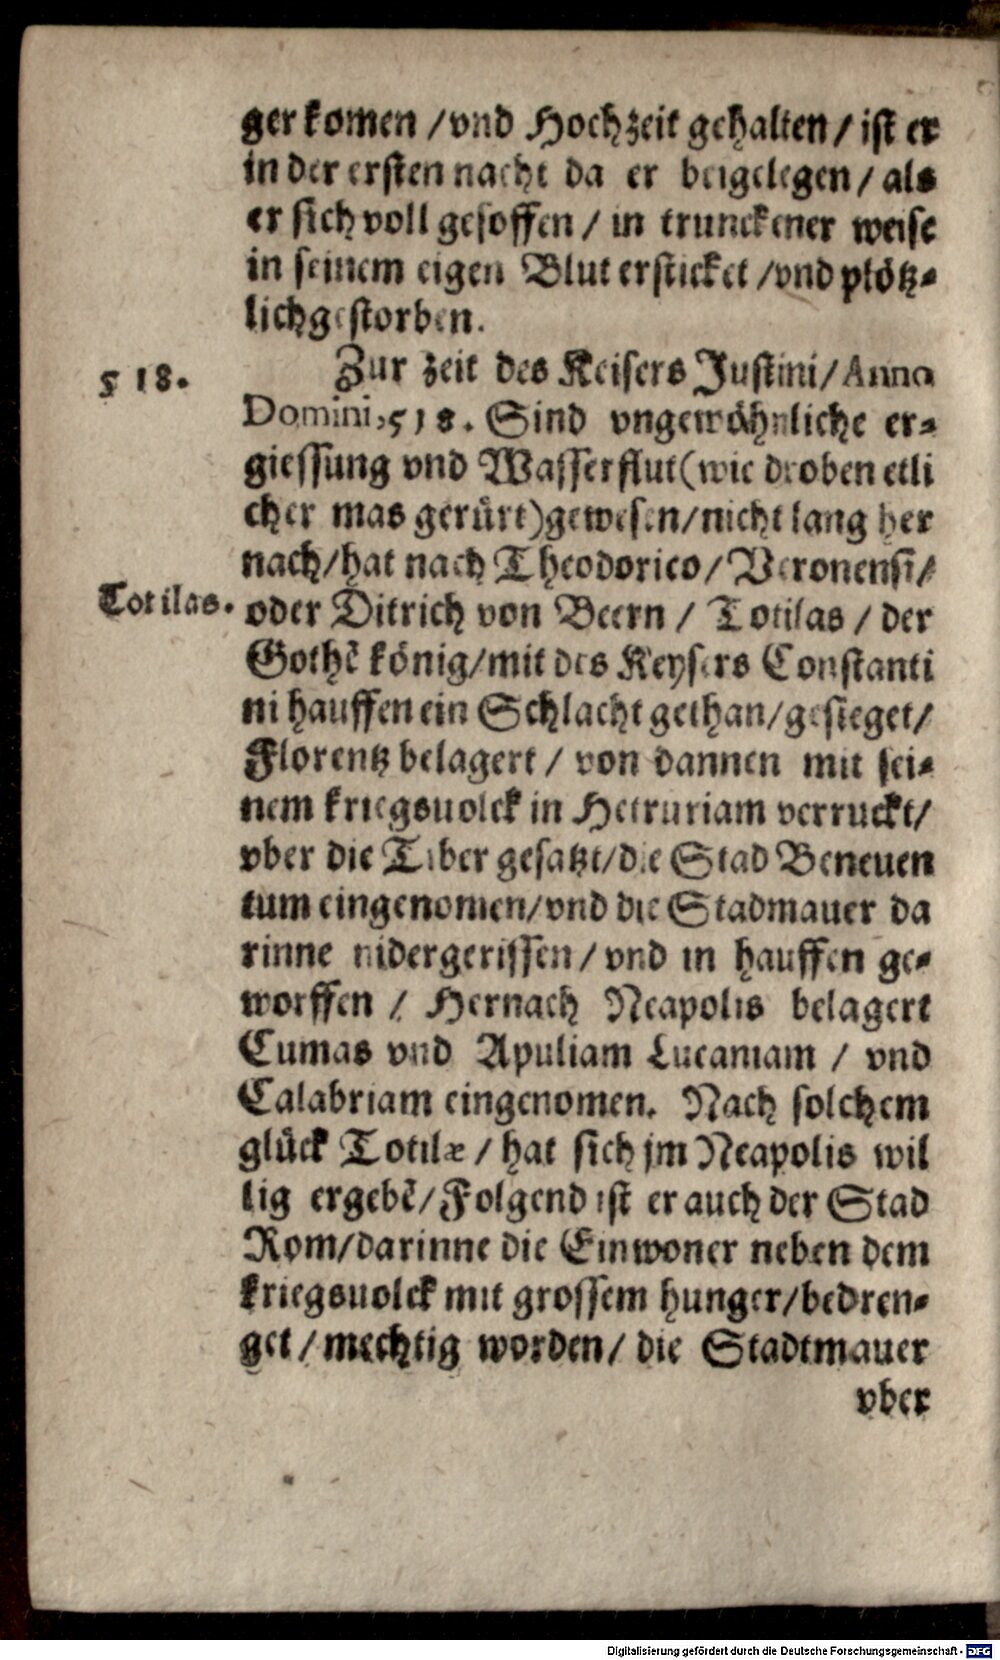 ger komen / vnd Hochzeit gehalten / ist er
in der ersten nacht da er beigelegen / als
er sich voll gesoffen / in trunckener weise
in seinem eigen Blut ersticket / vnd plötz-
lich gestorben.
518.
Zur zeit des Keisers Justini / Anno
Domini, 518. Sind vngewöhnliche er-
giessung vnd Wasserflut (wie droben etli
cher mas gerürt) gewesen / nicht lang her
nach / hat nach Theodorico / Veronensi /
Totilas.
oder Ditrich von Beern / Totilas / der
Gothē könig / mit des Keysers Constanti
ni hauffen ein Schlacht gethan / gesieget /
Florentz belagert / von dannen mit sei-
nem kriegsuolck in Hetruriam verruckt /
vber die Tiber gesatzt / die Stad Beneuen
tum eingenomen / vnd die Stadmauer da
rinne nidergerissen / vnd in hauffen ge-
worffen / Hernach Neapolis belagert
Cumas vnd Apuliam Lucaniam / vnd
Calabriam eingenomen. Nach solchem
glück Totilæ / hat sich jm Neapolis wil
lig ergebē / Folgend ist er auch der Stad
Rom / darinne die Einwoner neben dem
kriegsuolck mit grossem hunger / bedren-
get / mechtig worden / die Stadtmauer
vber
Digitalisierung gefördert durch die Deutsche Forschungsgemeinschaft - DFG